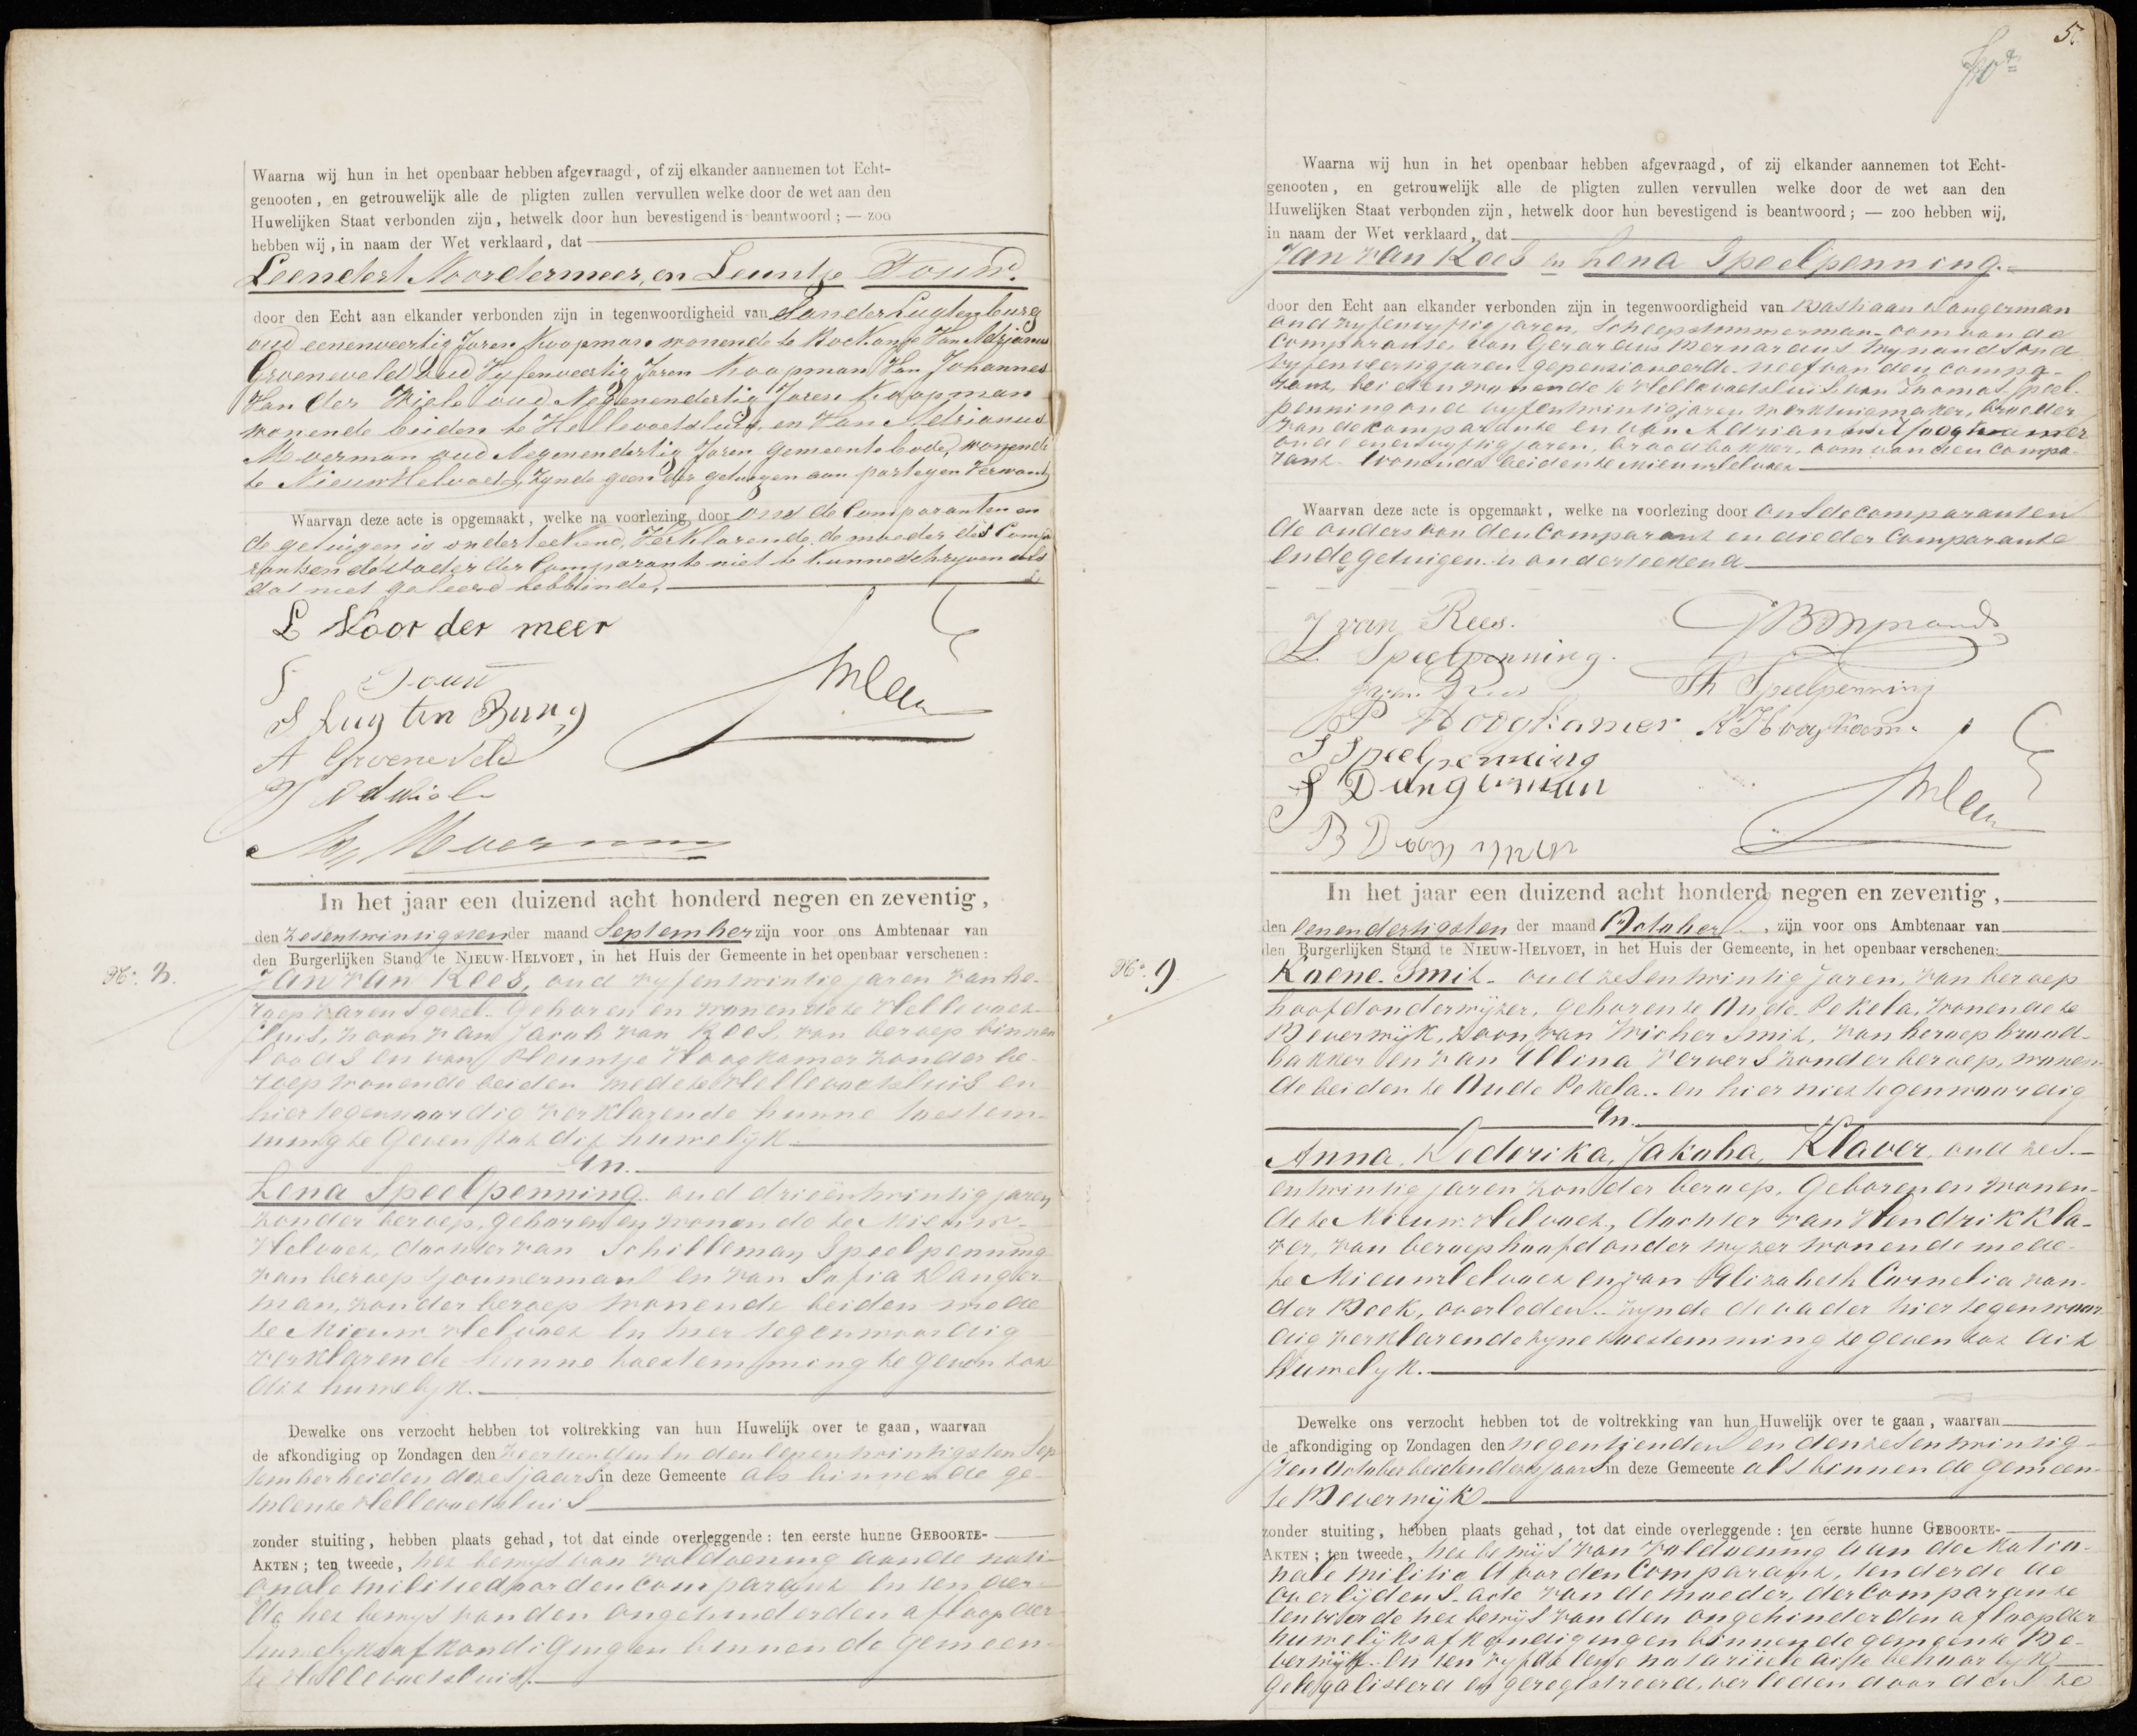 Waarna wij hun in het openbaar hebben afgevraagd, of zij elkander aannemen tot Echt-
genooten, en getrouwelijk alle de pligten zullen vervullen welke door de wet aan den
Huwelijken Staat verbonden zijn, hetwelk door hun bevestigend is beantwoord; — zoo
hebben wij, in naam der Wet verklaard, dat
Leendert Noordermeer, en Leuntje Touw.
door den Echt aan elkander verbonden zijn in tegenwoordigheid van Sander Lugtenburg
oud eenenveertig Jaren Koopman wonende te Rockanje Van Adrianus
Groeneveld oud Vyfenveertig Jaren Koopman Van Johannes
Van der Wiele oud Negenendertig Jaren Koopman
wonende beiden te Hellevoetsluis, en Van Adrianus
Moerman oud Negenendertig Jaren gemeentebode, wonende
te Nieuw Helvoet, zynde geen der getuigen aan partyen Verwant
Waarvan deze acte is opgemaakt, welke na voorlezing door ons de Comparanten en
de getuigen is onderteekend, Verklarende de moeder des Compa
ranten de Vader der Comparante niet te kunnen schryven als
dat niet geleerd hebbende.
L Noordermeer
L Touw
S Lugtenburg
A Groeneveld
J vd Wiel
A Moerman
In het jaar een duizend acht honderd negen en zeventig,
den zesentwintigsten der maand September zijn voor ons Ambtenaar van
den Burgerlijken Stand te NIEUW-HELVOET, in het Huis der Gemeente in het openbaar verschenen:
No. 8.
Jan van Rees, oud vyfentwintig jaren van be-
roep varensgezel. Geboren en wonende te Hellevoet-
sluis, zoon van Jacob van Rees, van beroep binnen
loods en van Pleuntje Hoogkamer zonder be-
roep wonende beiden mede te Hellevoetsluis en
hier tegenwoordig verklarende hunne toestem-
ming te Geven tot dit huwelyk
En.
Lena Speelpenning oud drieëntwintig jaren
zonder beroep, geboren en wonende te Nieuw-
Helvoet, dochter van Schilleman Speelpenning
van beroep sjouwerman en van Sofia Danger-
man, zonder beroep wonende beiden mede
te Nieuw Helvoet en hier tegenwoordig
verklarende hunne toestemming te geven tot
dit huwelyk.
Dewelke ons verzocht hebben tot voltrekking van hun Huwelijk over te gaan, waarvan
de afkondiging op Zondagen den veertienden en den eenentwintigsten Sep
tember beiden dezes jaars in deze Gemeente als binnen de ge-
meente Hellevoetsluis
zonder stuiting, hebben plaats gehad, tot dat einde overleggende: ten eerste hunne GEBOORTE-
AKTEN; ten tweede, het bewys van voldoening aan de nati-
onale militie door den Comparant en ten der-
de het bewys van den ongehinderden afloop der
huwelyksafkondigingen binnen de gemeen-
te Hellevoetsluis.
5.
Waarna wij hun in het openbaar hebben afgevraagd, of zij elkander aannemen tot Echt-
genooten, en getrouwelijk alle de pligten zullen vervullen welke door de wet aan den
Huwelijken Staat verbonden zijn, hetwelk door hun bevestigend is beantwoord; — zoo hebben wij,
in naam der Wet verklaard, dat
Jan van Rees en Lena Speelpenning.
door den Echt aan elkander verbonden zijn in tegenwoordigheid van Bastiaan Dangerman
oud vyfenvyftig jaren, Scheepstimmerman oom van de
Comparante, van Gerardus Bernardus Wynands oud
vyfenveertig jaren gepensioneerde neef van den compa-
rant, beiden wonende te Hellevoetsluis van Thomas Speel-
penning oud vyfentwintig jaren werktuigmaker, broeder
van de comparante en van Adrianus Hoogkamer
oud eenenvyftig jaren, broodbakker, oom van den compa-
rant. Wonende beiden te Nieuw Helvoet
Waarvan deze acte is opgemaakt, welke na voorlezing door ons de comparanten
de ouders van den Comparant en die der Comparante
en de getuigen is onderteekend
J van Rees.
GB Wynands
L Speelpenning.
J van Rees
Th Speelpenning
P Hoogkamer
A Hoogkamer
S Speelpenning
S Dangerman
B Dangerman
In het jaar een duizend acht honderd negen en zeventig,
den eenendertigsten der maand October, zijn voor ons Ambtenaar van
den Burgerlijken Stand te NIEUW-HELVOET, in het Huis der Gemeente, in het openbaar verschenen:
No. 9
Koene Smit oud zesentwintig jaren, van beroep
hoofdonderwijzer, geboren te Oude Pekela, wonende te
Beverwijk, Zoon van Wicher Smit, van beroep brood-
bakker en van Ellina Ververs zonder beroep, wonen
de beiden te Oude Pekela. en hier niet tegenwoordig
En.
Anna, Dederika, Jakoba, Klaver, oud zes-
entwintig jaren zonder beroep. Geboren en wonen-
de te Nieuw Helvoet, dochter van Hendrik Kla-
ver, van beroep hoofdonderwyzer wonende mede
te Nieuw Helvoet en van Elizabeth Cornelia van
der Hoek, overleden. zynde de vader hier tegenwoor
dig verklarende zyne toestemming te geven tot dit
Huwelyk.
Dewelke ons verzocht hebben tot de voltrekking van hun Huwelijk over te gaan, waarvan
de afkondiging op Zondagen den negentienden en den zesentwintig
sten October beiden dezes jaars in deze Gemeente als binnen de gemeen
te Beverwijk
zonder stuiting, hebben plaats gehad, tot dat einde overleggende: ten eerste hunne GEBOORTE-
AKTEN; ten tweede, het bewijs van voldoening aan de Natio-
nale militie door den Comparant, ten derde de
overlijdens acte van de moeder, der Comparante
ten vierde het bewijs van den ongehinderden afloop der
huwelijksafkondigingen binnen de gemeente Be-
verwijk en ten vyfde eene notariele acte behoorlyk
gelegaliseerd en geregistreerd, verleden door den te